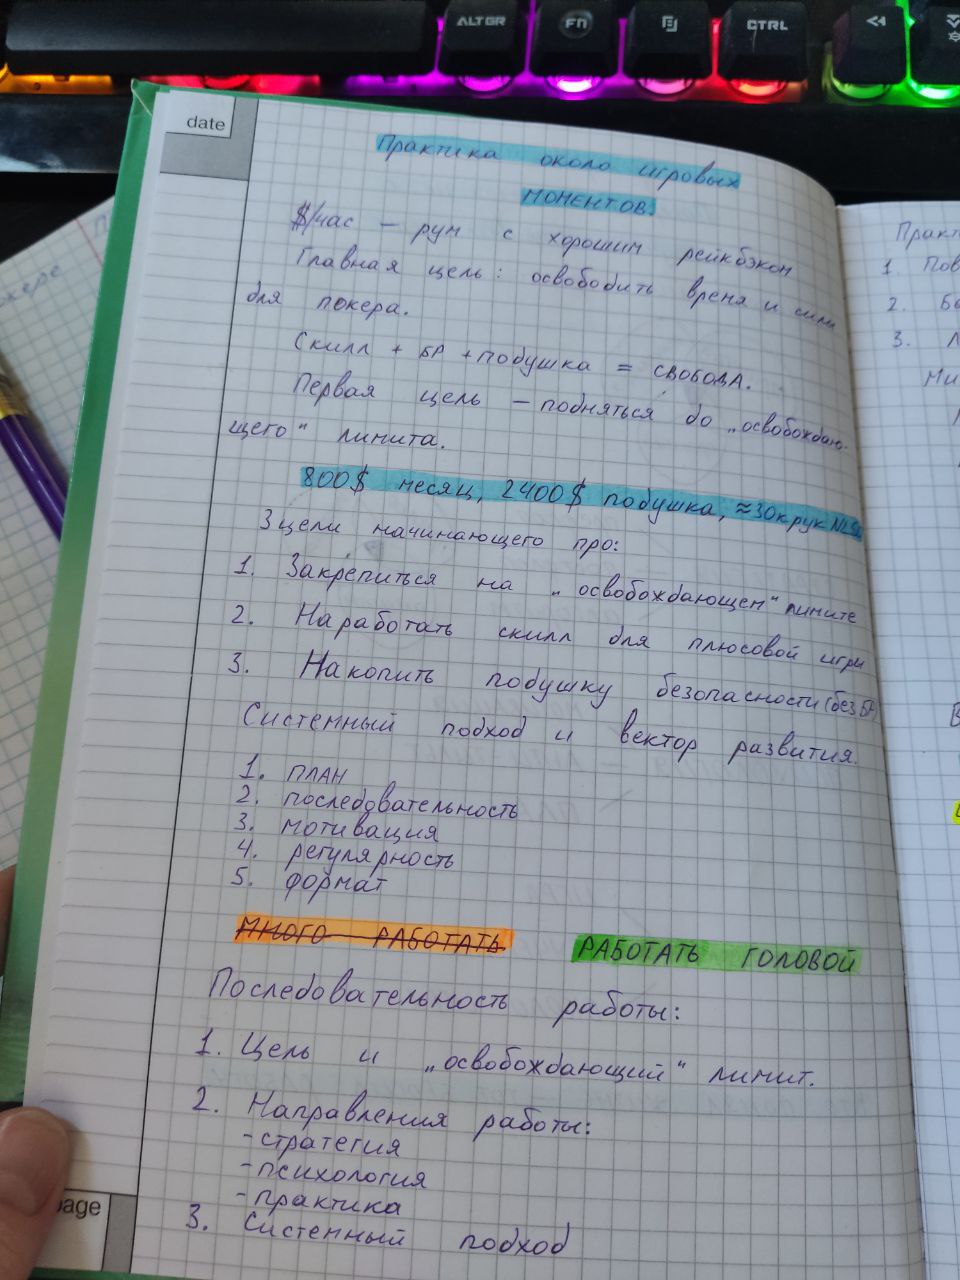 ALTGR
FN
CTRL
date
Практика около игровых
моментов.
$/час – рум с хорошим рейкбэком
Главная цель: освободить время и силы
для покера.
Скилл + БР + подушка = СВОБОДА.
Первая цель – подняться до „освобождаю-
щего" лимита.
800$ месяц, 2400$ подушка, ≈30к рук
3 цели начинающего про:
1. Закрепиться на „освобождающем" лимите
2. Наработать скилл для плюсовой игры
3. Накопить подушку безопасности (без БР)
Системный подход и вектор развития.
1. ПЛАН
2. последовательность
3. мотивация
4. регулярность
5. формат
МНОГО РАБОТАТЬ РАБОТАТЬ ГОЛОВОЙ
Последовательность работы:
1. Цель и „освобождающий" лимит.
2. Направления работы:
- стратегия
- психология
- практика
3. Системный подход
page
Практ
1. Пов
2.
3.
Ми